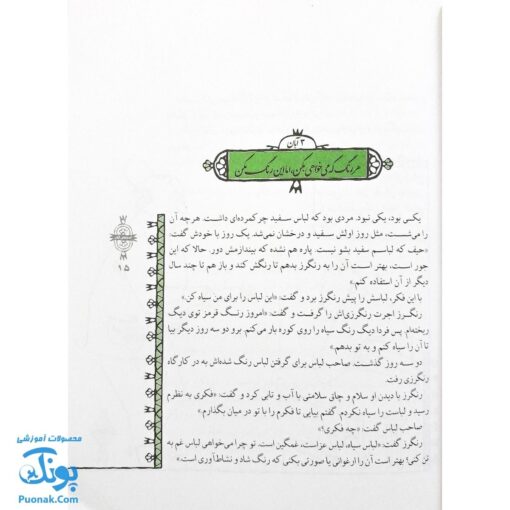 ۳ آبان
هر رنگ که می‌خواهی بکن، اما این رنگ مکن
یکی بود، یکی نبود. مردی بود که لباس سفید چرکمرده‌ای داشت. هر چه آن
را می‌شست، مثل روز اولش سفید و درخشان نمی‌شد. یک روز با خودش گفت:
«حیف که لباسم سفید بشو نیست. پاره هم نشده که بیندازمش دور. حالا که این
جور است، بهتر است آن را به رنگرز بدهم تا رنگش کند و باز هم تا چند سال
دیگر از آن استفاده کنم.»
با این فکر، لباسش را پیش رنگرز برد و گفت: «این لباس را برای من سیاه کن.»
رنگرز اجرت رنگرزی‌اش را گرفت و گفت: «امروز رنگ قرمز توی دیگ
ریخته‌ام. پس فردا دیگ رنگ سیاه را روی کوره بار می‌کنم. برو دو سه روز دیگر بیا
تا آن را سیاه کنم و به تو بدهم.»
دو سه روز گذشت. صاحب لباس برای گرفتن لباس رنگ شده‌اش به در کارگاه
رنگرزی رفت.
رنگرز با دیدن او سلام و چاق سلامتی با آب و تابی کرد و گفت: «فکری به نظرم
رسید و لباست را سیاه نکردم. گفتم بیایی تا فکرم را با تو در میان بگذارم.»
صاحب لباس گفت: «چه فکری؟»
رنگرز گفت: «لباس سیاه، لباس عزاست، غمگین است. تو چرا می‌خواهی لباس غم به
تن کنی؟ بهتر است آن را ارغوانی یا صورتی بکنی که رنگ شاد و نشاط‌آوری است.»
۱۵
محصولات آموزشی
پونک
Puonak.Com